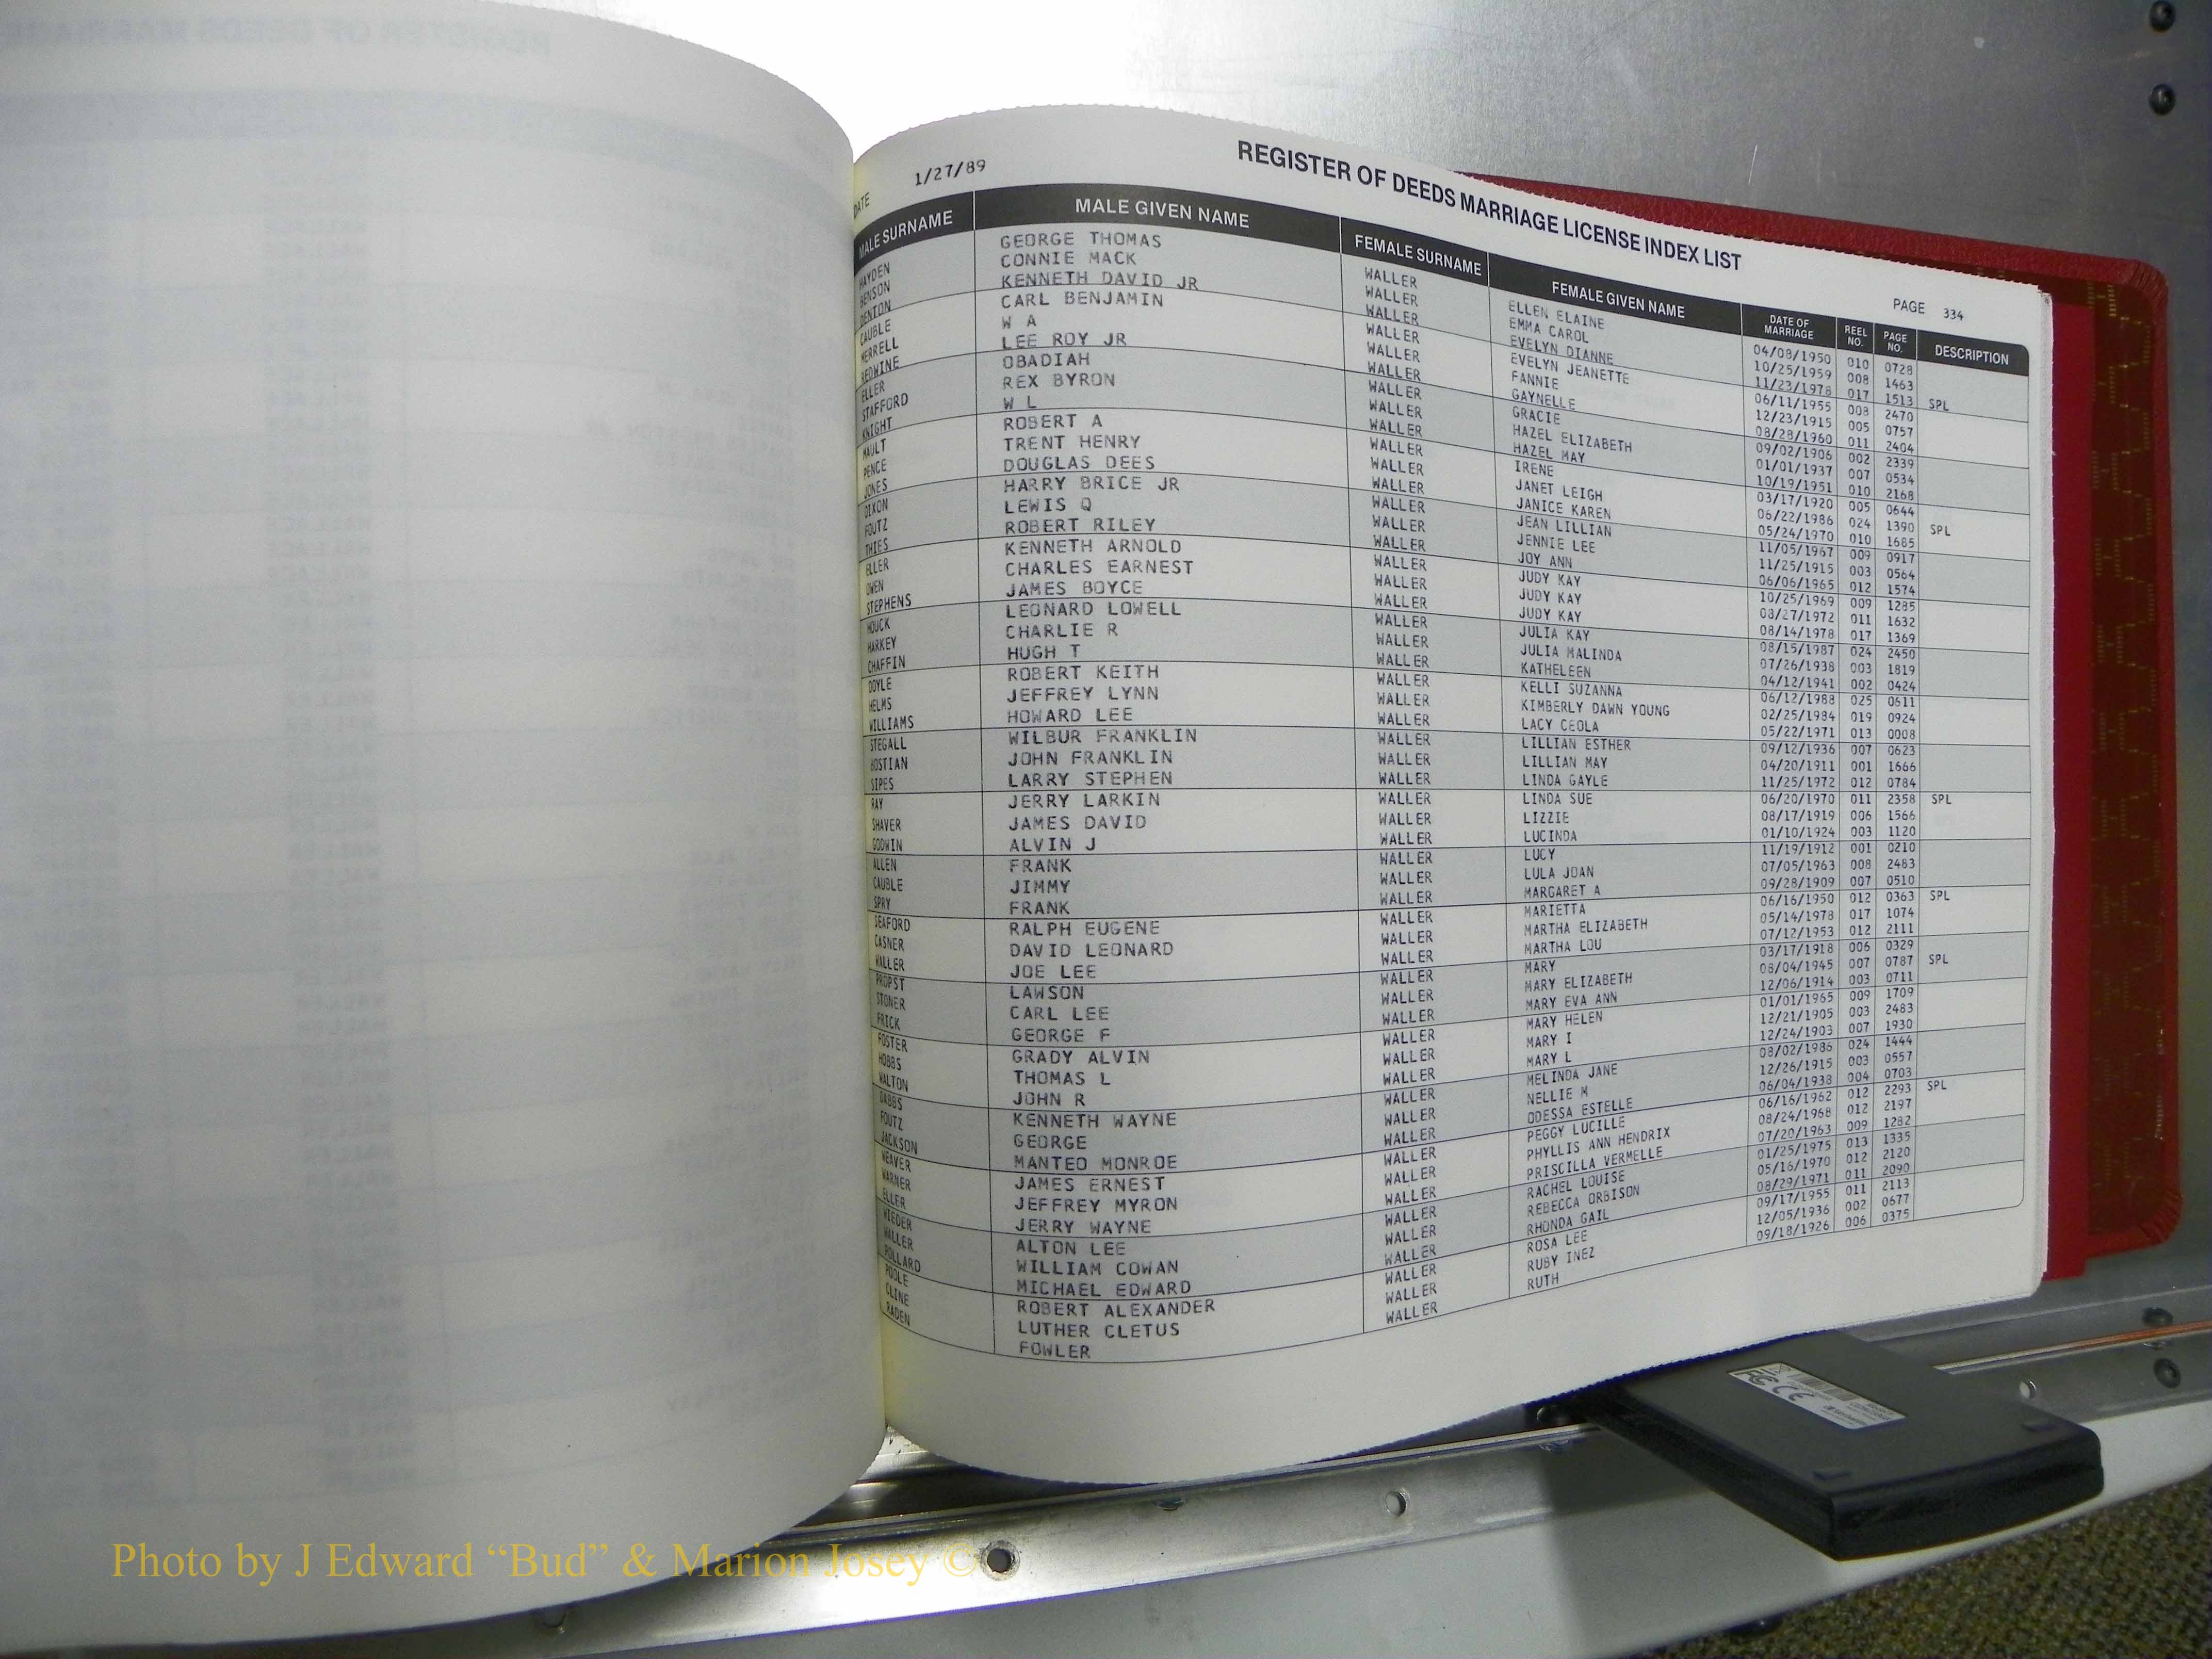 DATE 1/27/89 REGISTER OF DEEDS MARRIAGE LICENSE INDEX LIST PAGE 334
MALE SURNAME MALE GIVEN NAME FEMALE SURNAME FEMALE GIVEN NAME DATE OF MARRIAGE REEL NO. PAGE NO. DESCRIPTION
HAYDEN GEORGE THOMAS WALLER ELLEN ELAINE 04/08/1950 010 0728
BENSON CONNIE MACK WALLER EMMA CAROL 10/25/1959 008 1463
DENTON KENNETH DAVID JR WALLER EVELYN DIANNE 11/23/1978 017 1513 SPL
CAUBLE CARL BENJAMIN WALLER EVELYN JEANETTE 06/11/1955 008 2470
MERRELL W A WALLER FANNIE 12/23/1915 005 0757
REDWINE LEE ROY JR WALLER GAYNELLE 08/28/1960 011 2404
ELLER OBADIAH WALLER GRACIE 09/02/1906 002 2339
STAFFORD REX BYRON WALLER HAZEL ELIZABETH 01/01/1937 007 0534
KNIGHT W L WALLER HAZEL MAY 10/19/1951 010 2168
MAULT ROBERT A WALLER IRENE 03/17/1920 005 0644
PENCE TRENT HENRY WALLER JANET LEIGH 06/22/1986 024 1390 SPL
JONES DOUGLAS DEES WALLER JANICE KAREN 05/24/1970 010 1685
DIXON HARRY BRICE JR WALLER JEAN LILLIAN 11/05/1967 009 0917
FOUTZ LEWIS Q WALLER JENNIE LEE 11/25/1915 003 0564
THIES ROBERT RILEY WALLER JOY ANN 06/06/1965 012 1574
ELLER KENNETH ARNOLD WALLER JUDY KAY 10/25/1969 009 1285
OWEN CHARLES EARNEST WALLER JUDY KAY 08/27/1972 011 1632
STEPHENS JAMES BOYCE WALLER JUDY KAY 08/14/1978 017 1369
HOUCK LEONARD LOWELL WALLER JULIA KAY 08/15/1987 024 2450
HARKEY CHARLIE R WALLER JULIA MALINDA 07/26/1938 003 1819
CHAFFIN HUGH T WALLER KATHELEEN 04/12/1941 002 0424
DOYLE ROBERT KEITH WALLER KELLI SUZANNA 06/12/1988 025 0611
HELMS JEFFREY LYNN WALLER KIMBERLY DAWN YOUNG 02/25/1984 019 0924
WILLIAMS HOWARD LEE WALLER LACY CEOLA 05/22/1971 013 0008
STEGALL WILBUR FRANKLIN WALLER LILLIAN ESTHER 09/12/1936 007 0623
BOSTIAN JOHN FRANKLIN WALLER LILLIAN MAY 04/20/1911 001 1666
SIPES LARRY STEPHEN WALLER LINDA GAYLE 11/25/1972 012 0784
RAY JERRY LARKIN WALLER LINDA SUE 06/20/1970 011 2358 SPL
SHAVER JAMES DAVID WALLER LIZZIE 08/17/1919 006 1566
GODWIN ALVIN J WALLER LUCINDA 01/10/1924 003 1120
ALLEN FRANK WALLER LUCY 11/19/1912 001 0210
CAUBLE JIMMY WALLER LULA JOAN 07/05/1963 008 2483
SPRY FRANK WALLER MARGARET A 09/28/1909 007 0510
SEAFORD RALPH EUGENE WALLER MARIETTA 06/16/1950 012 0363 SPL
CASNER DAVID LEONARD WALLER MARTHA ELIZABETH 05/14/1978 017 1074
WALLER JOE LEE WALLER MARTHA LOU 07/12/1953 012 2111
PROPST LAWSON WALLER MARY 03/17/1918 006 0329
STONER CARL LEE WALLER MARY ELIZABETH 08/04/1945 007 0787 SPL
FRICK GEORGE F WALLER MARY EVA ANN 12/06/1914 003 0711
FOSTER GRADY ALVIN WALLER MARY HELEN 01/01/1965 009 1709
HOBBS THOMAS L WALLER MARY I 12/21/1905 003 2483
WALTON JOHN R WALLER MARY L 12/24/1903 007 1930
DABBS KENNETH WAYNE WALLER MELINDA JANE 08/02/1986 024 1444
FOUTZ GEORGE WALLER NELLIE M 12/26/1915 003 0557
JACKSON MANTEO MONROE WALLER ODESSA ESTELLE 06/04/1938 004 0703
WEAVER JAMES ERNEST WALLER PEGGY LUCILLE 06/16/1962 012 2293 SPL
WARNER JEFFREY MYRON WALLER PHYLLIS ANN HENDRIX 08/24/1968 012 2197
ELLER JERRY WAYNE WALLER PRISCILLA VERMELLE 07/20/1963 009 1282
WIEDER ALTON LEE WALLER RACHEL LOUISE 01/25/1975 013 1335
WALLER WILLIAM COWAN WALLER REBECCA ORBISON 05/16/1970 012 2120
POLLARD MICHAEL EDWARD WALLER RHONDA GAIL 08/29/1971 011 2090
POOLE ROBERT ALEXANDER WALLER ROSA LEE 09/17/1955 011 2113
CLINE LUTHER CLETUS WALLER RUBY INEZ 12/05/1936 002 0677
RADEN FOWLER WALLER RUTH 09/18/1926 006 0375
Photo by J Edward “Bud” & Marion Josey ©